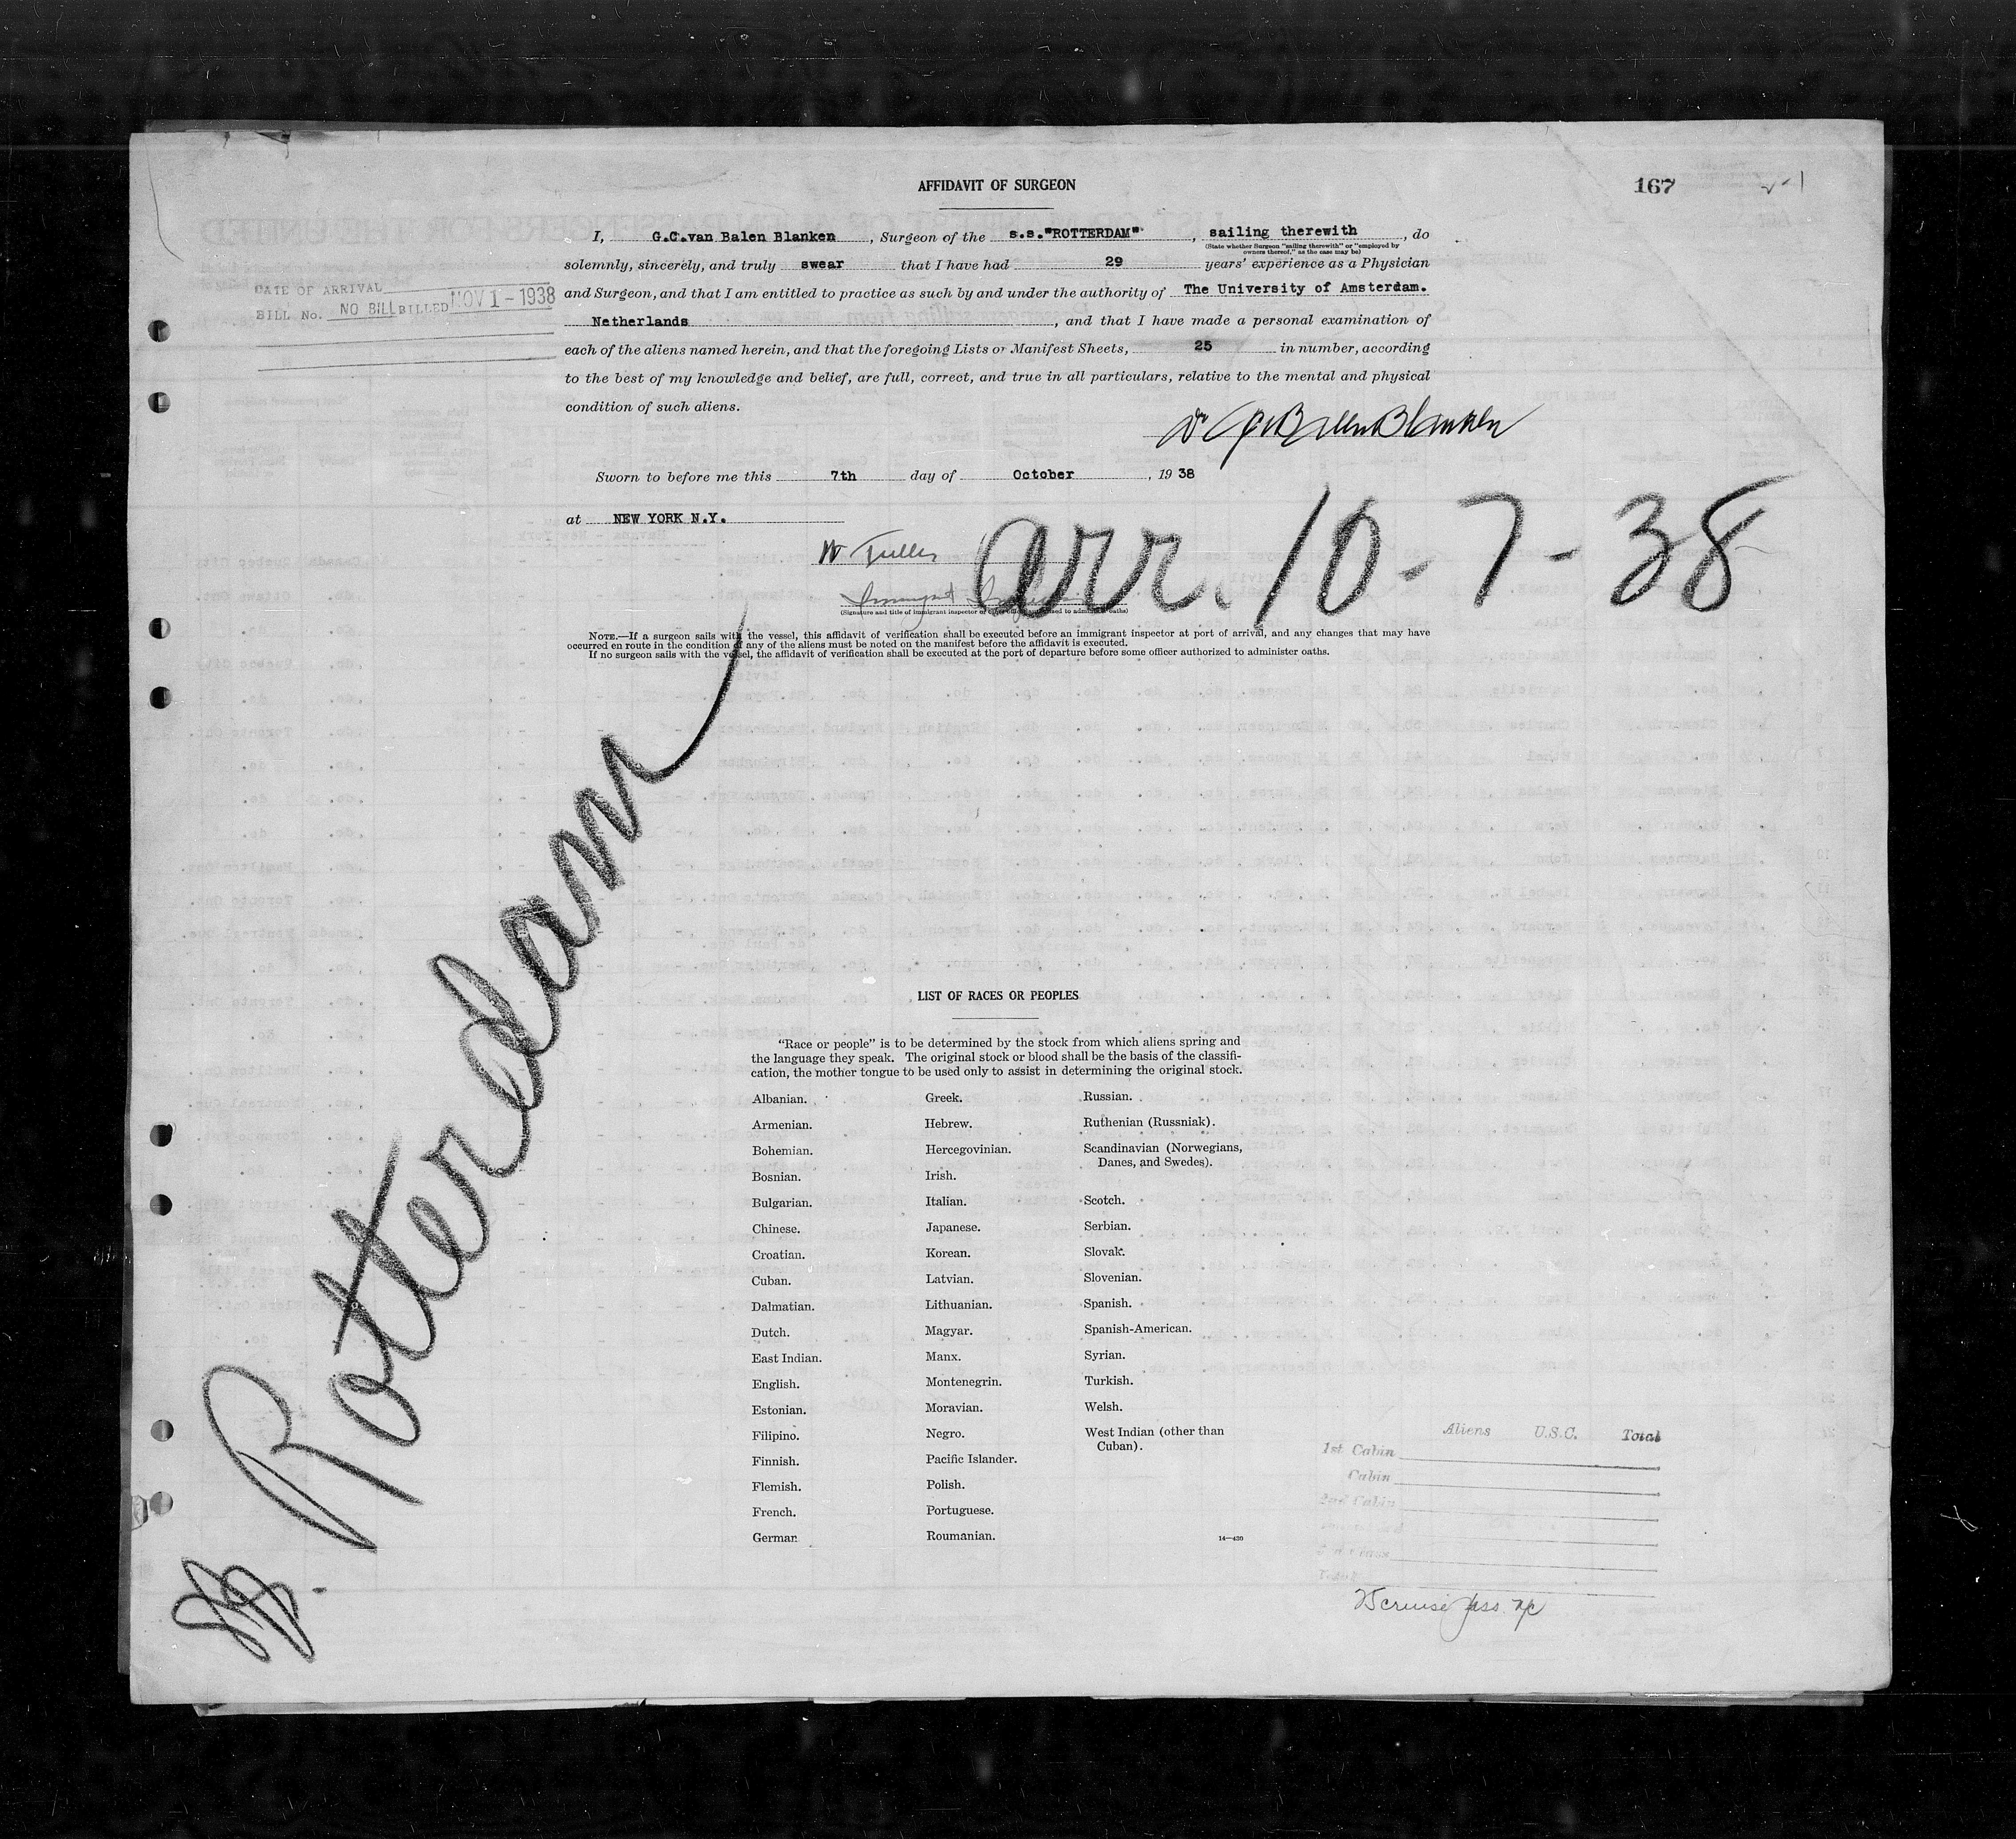 AFFIDAVIT OF SURGEON
167
I, G.C.van Balen Blanken, Surgeon of the s.s."ROTTERDAM", sailing therewith, do
(State whether Surgeon "sailing therewith" or "employed by owners thereof," as the case may be)
solemnly, sincerely, and truly swear that I have had 29 years' experience as a Physician
and Surgeon, and that I am entitled to practice as such by and under the authority of The University of Amsterdam.
Netherlands, and that I have made a personal examination of
each of the aliens named herein, and that the foregoing Lists or Manifest Sheets, 25 in number, according
to the best of my knowledge and belief, are full, correct, and true in all particulars, relative to the mental and physical
condition of such aliens.
DATE OF ARRIVAL
BILL No. NO BILL BILLED NOV 1 - 1938
Sworn to before me this 7th day of October, 1938
at NEW YORK N.Y.
arr. 10-7-38
(Signature and title of immigrant inspector or other officer authorized to administer oaths)
NOTE.—If a surgeon sails with the vessel, this affidavit of verification shall be executed before an immigrant inspector at port of arrival, and any changes that may have
occurred en route in the condition of any of the aliens must be noted on the manifest before the affidavit is executed.
If no surgeon sails with the vessel, the affidavit of verification shall be executed at the port of departure before some officer authorized to administer oaths.
SS. Rotterdam
LIST OF RACES OR PEOPLES
"Race or people" is to be determined by the stock from which aliens spring and
the language they speak. The original stock or blood shall be the basis of the classifi-
cation, the mother tongue to be used only to assist in determining the original stock.
Albanian.
Armenian.
Bohemian.
Bosnian.
Bulgarian.
Chinese.
Croatian.
Cuban.
Dalmatian.
Dutch.
East Indian.
English.
Estonian.
Filipino.
Finnish.
Flemish.
French.
German
Greek.
Hebrew.
Hercegovinian.
Irish.
Italian.
Japanese.
Korean.
Latvian.
Lithuanian.
Magyar.
Manx.
Montenegrin.
Moravian.
Negro.
Pacific Islander.
Polish.
Portuguese.
Roumanian.
Russian.
Ruthenian (Russniak).
Scandinavian (Norwegians,
Danes, and Swedes).
Scotch.
Serbian.
Slovak.
Slovenian.
Spanish.
Spanish-American.
Syrian.
Turkish.
Welsh.
West Indian (other than
Cuban).
14—430
Aliens U.S.C. Total
1st Cabin
Cabin
2nd Cabin
Total
25 cruise pass